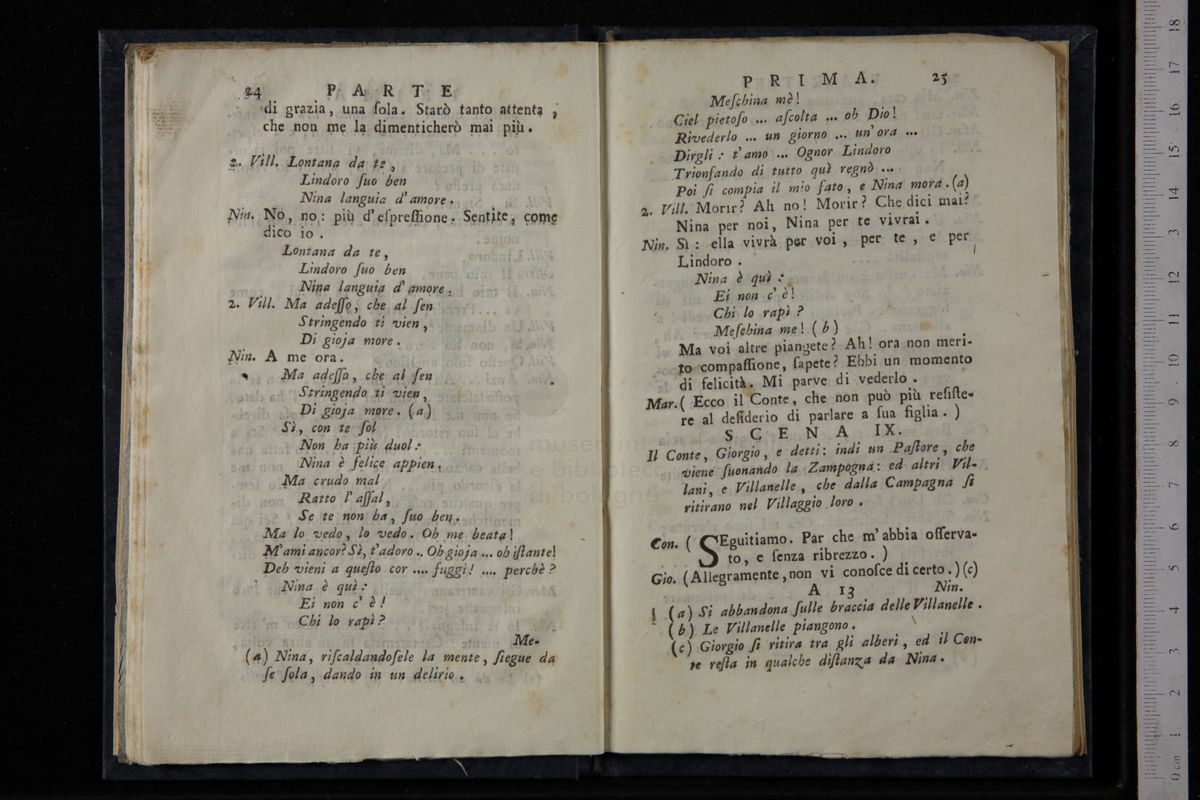 24 PARTE
di grazia, una ſola. Starò tanto attenta,
che non me la dimenticherò mai più.
2. Vill. Lontana da te,
Lindoro ſuo ben
Nina languia d'amore.
Nin. No, no: più d'eſpreſſione. Sentite, come
dico io.
Lontana da te,
Lindoro ſuo ben
Nina languia d'amore.
2. Vill. Ma adeſſo, che al ſen
Stringendo ti vien,
Di gioja more.
Nin. A me ora.
Ma adeſſo, che al ſen
Stringendo ti vien,
Di gioja more. (a)
Sì, con te ſol
Non ha più duol:
Nina è felice appien.
Ma crudo mal
Ratto l'aſſal,
Se te non ha, ſuo ben.
Ma lo vedo, lo vedo. Oh me beata!
M'ami ancor? Sì, t'adoro .. Oh gioja ... oh iſtante!
Deh vieni a queſto cor .... fuggi! .... perchè?
Nina è quì:
Ei non c'è!
Chi lo rapì?
Me-
(a) Nina, riſcaldandoſele la mente, ſiegue da
ſe ſola, dando in un delirio.
PRIMA. 25
Meſchina mè!
Ciel pietoſo ... aſcolta ... oh Dio!
Rivederlo ... un giorno ... un'ora ...
Dirgli: t'amo ... Ognor Lindoro
Trionfando di tutto quì regnò ...
Poi ſi compia il mio fato, e Nina mora. (a)
2. Vill. Morir? Ah no! Morir? Che dici mai?
Nina per noi, Nina per te vivrai.
Nin. Sì: ella vivrà per voi, per te, e per
Lindoro.
Nina è quì:
Ei non c'è!
Chi lo rapì?
Meſchina me! (b)
Ma voi altre piangete? Ah! ora non meri-
to compaſſione, ſapete? Ebbi un momento
di felicità. Mi parve di vederlo.
Mar. (Ecco il Conte, che non può più reſiſte-
re al deſiderio di parlare a ſua figlia.)
SCENA IX.
Il Conte, Giorgio, e detti: indi un Paſtore, che
viene ſuonando la Zampogna: ed altri Vil-
lani, e Villanelle, che dalla Campagna ſi
ritirano nel Villaggio loro.
Con. (SEguitiamo. Par che m'abbia oſſerva-
to, e ſenza ribrezzo.)
Gio. (Allegramente, non vi conoſce di certo.) (c)
A 13 Nin.
(a) Si abbandona ſulle braccia delle Villanelle.
(b) Le Villanelle piangono.
(c) Giorgio ſi ritira tra gli alberi, ed il Con-
te reſta in qualche diſtanza da Nina.